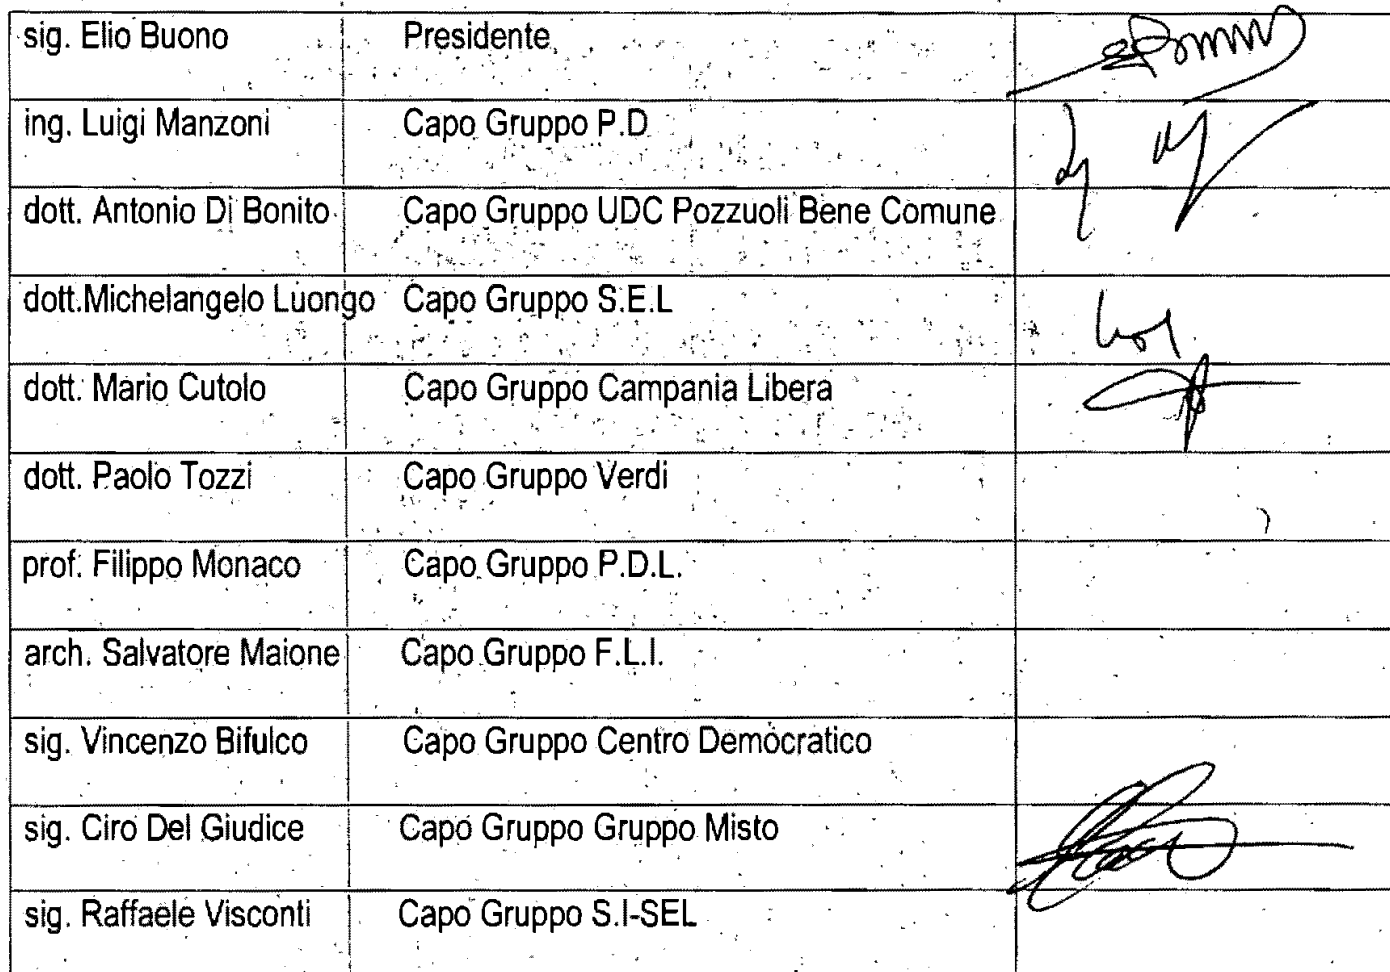 sig. Elio Buono Presidente
ing. Luigi Manzoni Capo Gruppo P.D
dott. Antonio Di Bonito Capo Gruppo UDC Pozzuoli Bene Comune
dott.Michelangelo Luongo Capo Gruppo S.E.L
dott. Mario Cutolo Capo Gruppo Campania Libera
dott. Paolo Tozzi Capo Gruppo Verdi
prof. Filippo Monaco Capo Gruppo P.D.L.
arch. Salvatore Maione Capo Gruppo F.L.I.
sig. Vincenzo Bifulco Capo Gruppo Centro Democratico
sig. Ciro Del Giudice Capo Gruppo Gruppo Misto
sig. Raffaele Visconti Capo Gruppo S.I-SEL